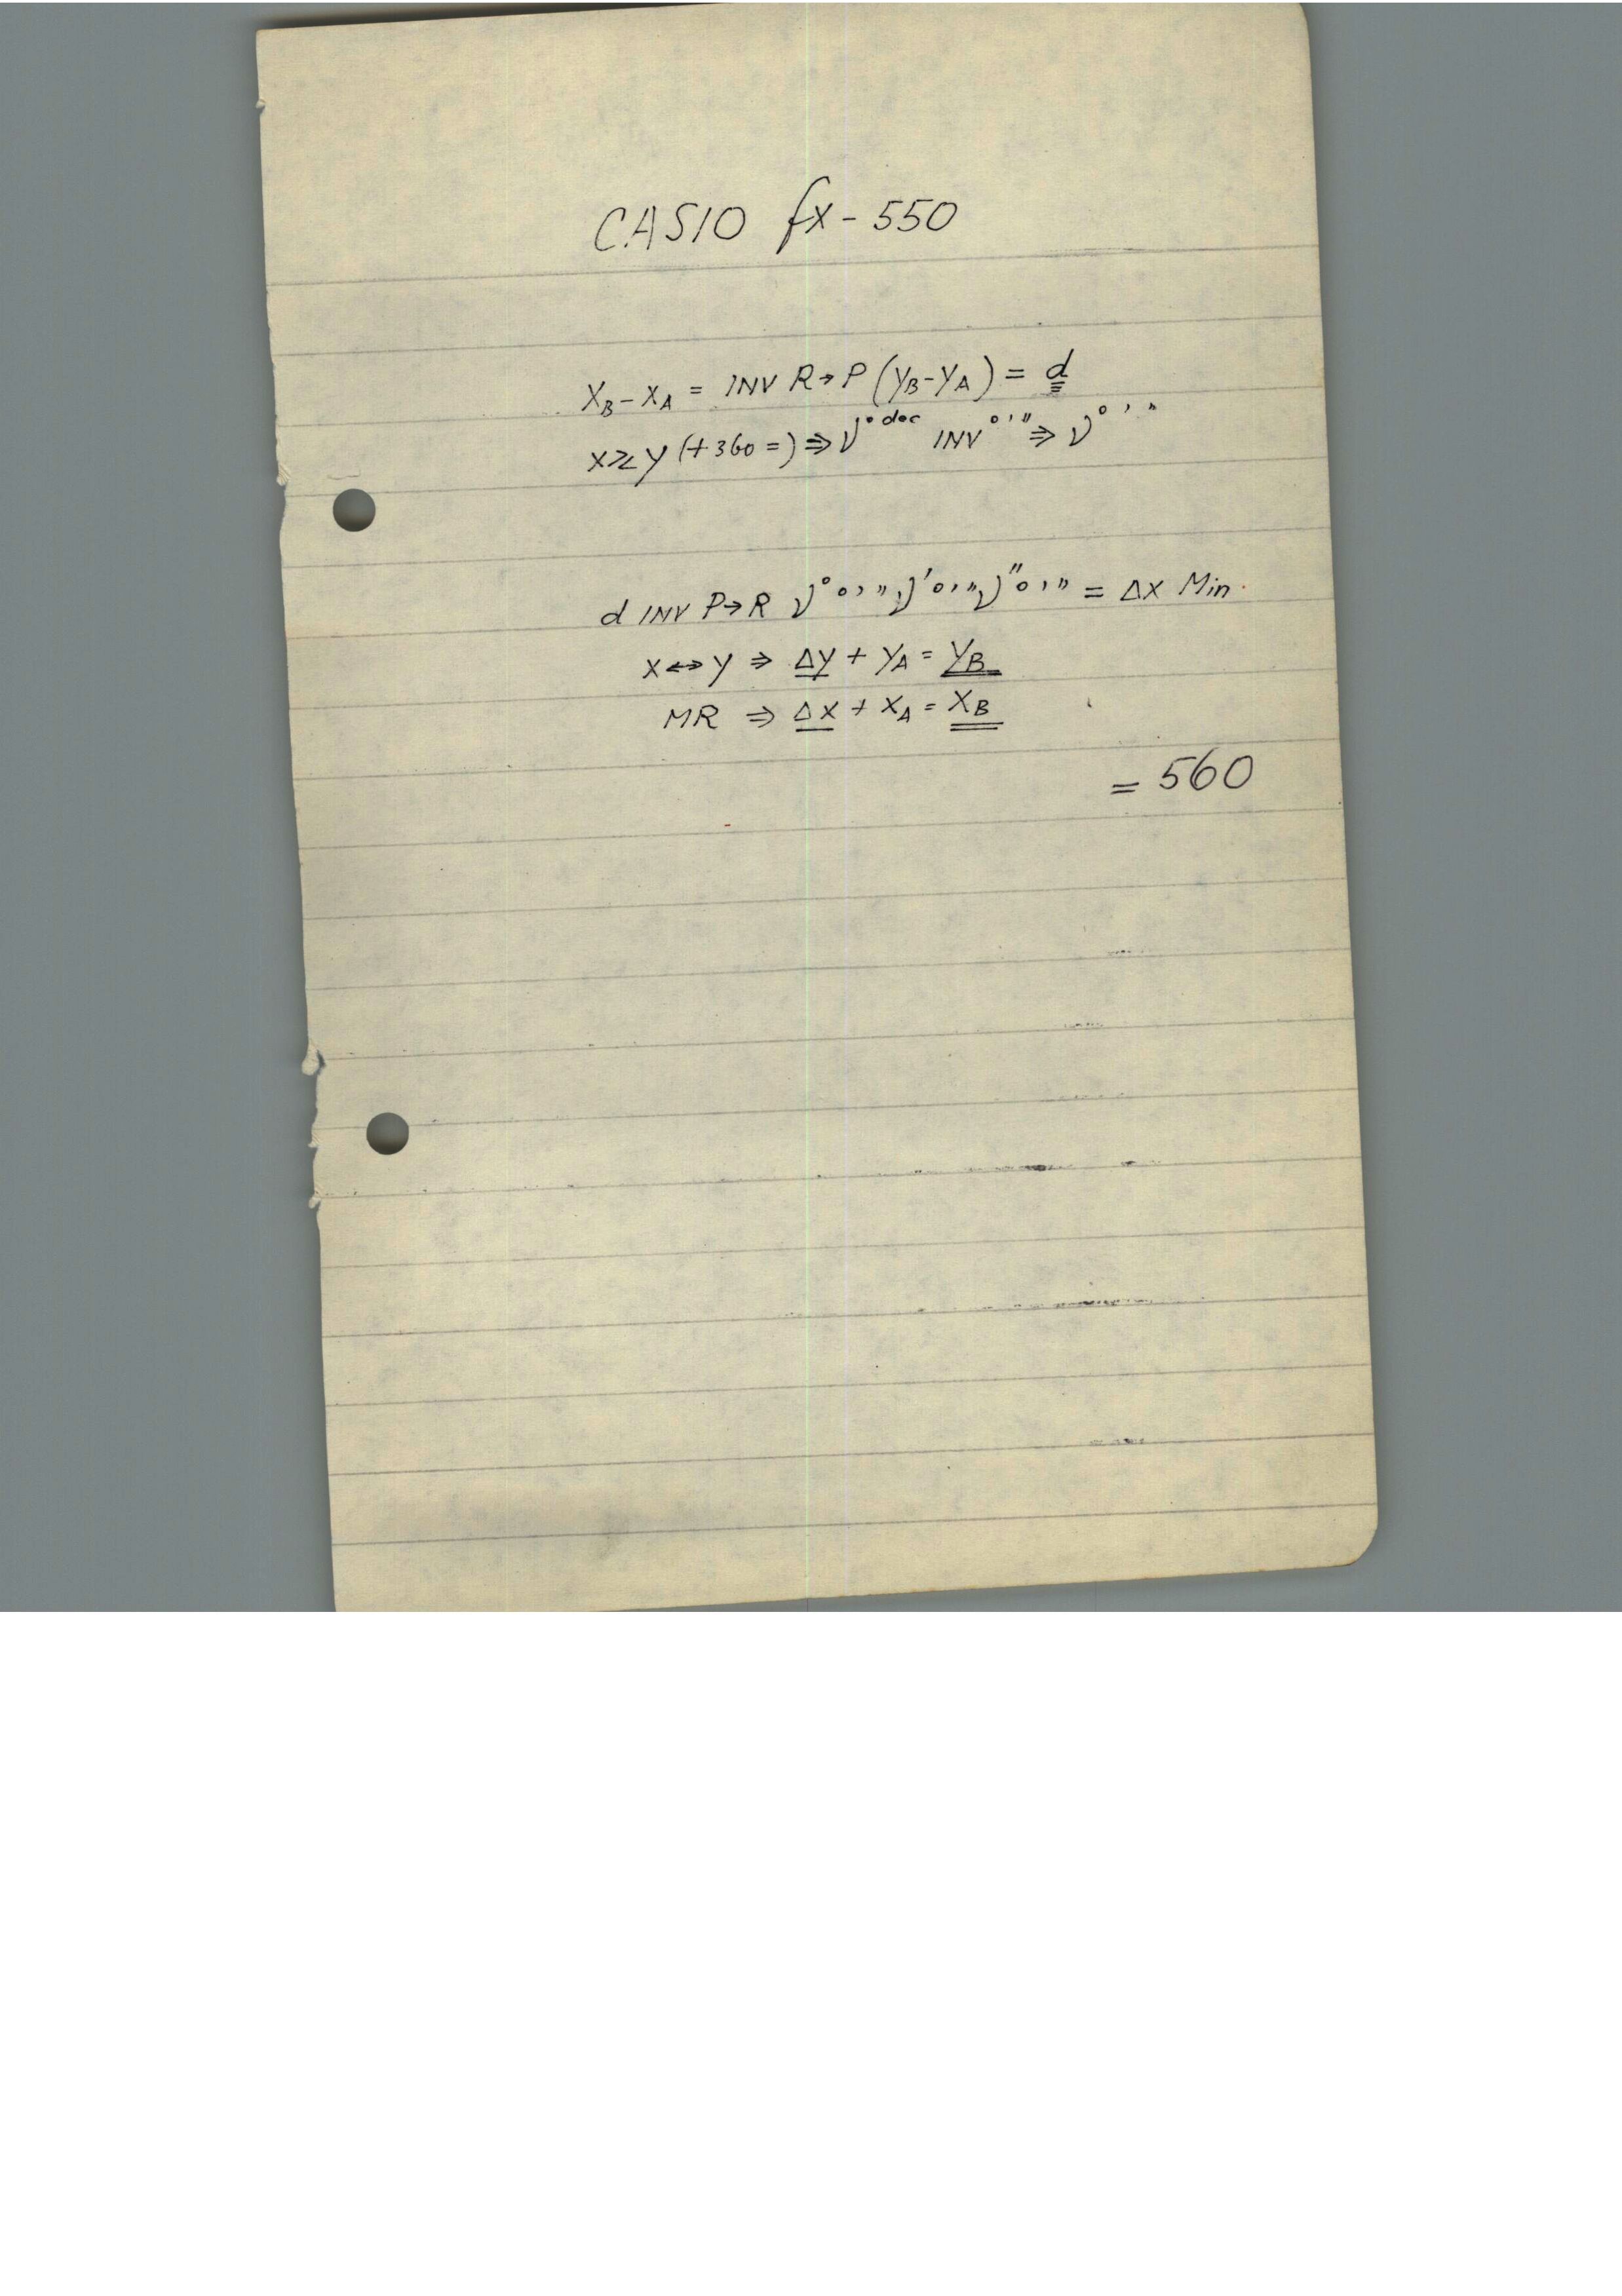 CASIO fx-550
X_B-X_A = INV R→P (Y_B-Y_A) = d
X≷Y (+360=) ⇒ ν° dec INV °'" ⇒ ν° ' "
d INV P→R ν° °'" ν' °'" ν" °'" = ΔX Min
X↔Y ⇒ ΔY + Y_A = Y_B
MR ⇒ ΔX + X_A = X_B
= 560